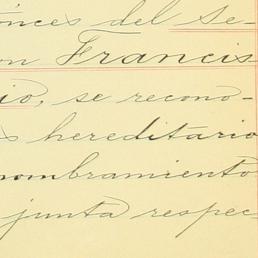 onces del Se-
on Francis
io, se recono-
s hereditario
nombramiento
junta respec-